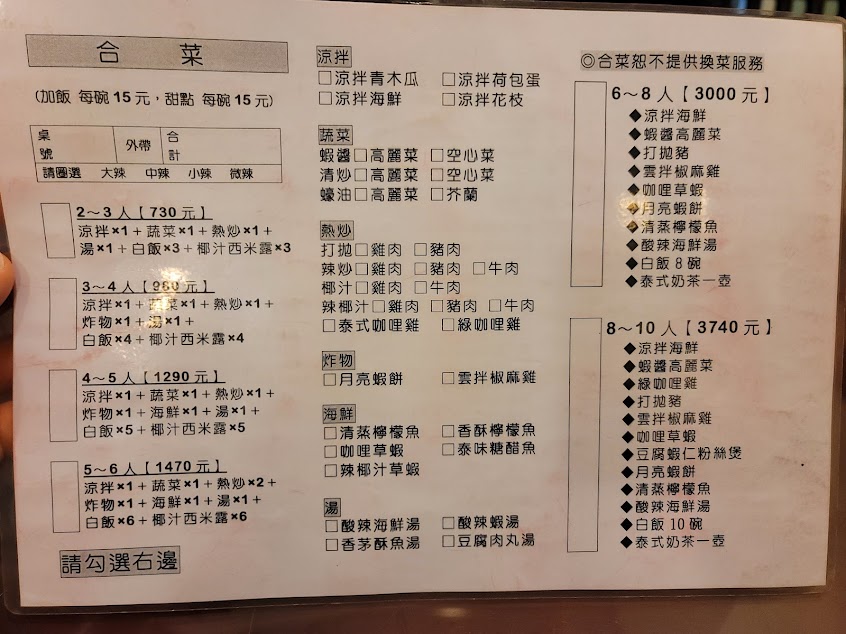 合菜
(加飯 每碗 15 元，甜點 每碗 15 元)
桌號 外帶 合計
請圈選 大辣 中辣 小辣 微辣
2～3 人【730 元】
涼拌×1＋蔬菜×1＋熱炒×1＋
湯×1＋白飯×3＋椰汁西米露×3
3～4 人【980 元】
涼拌×1＋蔬菜×1＋熱炒×1＋
炸物×1＋湯×1＋
白飯×4＋椰汁西米露×4
4～5 人【1290 元】
涼拌×1＋蔬菜×1＋熱炒×1＋
炸物×1＋海鮮×1＋湯×1＋
白飯×5＋椰汁西米露×5
5～6 人【1470 元】
涼拌×1＋蔬菜×1＋熱炒×2＋
炸物×1＋海鮮×1＋湯×1＋
白飯×6＋椰汁西米露×6
請勾選右邊
涼拌
□涼拌青木瓜 □涼拌荷包蛋
□涼拌海鮮 □涼拌花枝
蔬菜
蝦醬□高麗菜 □空心菜
清炒□高麗菜 □空心菜
蠔油□高麗菜 □芥蘭
熱炒
打拋□雞肉 □豬肉
辣炒□雞肉 □豬肉 □牛肉
椰汁□雞肉 □牛肉
辣椰汁□雞肉 □豬肉 □牛肉
□泰式咖哩雞 □綠咖哩雞
炸物
□月亮蝦餅 □雲拌椒麻雞
海鮮
□清蒸檸檬魚 □香酥檸檬魚
□咖哩草蝦 □泰味糖醋魚
□辣椰汁草蝦
湯
□酸辣海鮮湯 □酸辣蝦湯
□香茅酥魚湯 □豆腐肉丸湯
◎合菜恕不提供換菜服務
6～8 人【3000 元】
◆涼拌海鮮
◆蝦醬高麗菜
◆打拋豬
◆雲拌椒麻雞
◆咖哩草蝦
◆月亮蝦餅
◆清蒸檸檬魚
◆酸辣海鮮湯
◆白飯 8 碗
◆泰式奶茶一壺
8～10 人【3740 元】
◆涼拌海鮮
◆蝦醬高麗菜
◆綠咖哩雞
◆打拋豬
◆雲拌椒麻雞
◆咖哩草蝦
◆豆腐蝦仁粉絲煲
◆月亮蝦餅
◆清蒸檸檬魚
◆酸辣海鮮湯
◆白飯 10 碗
◆泰式奶茶一壺